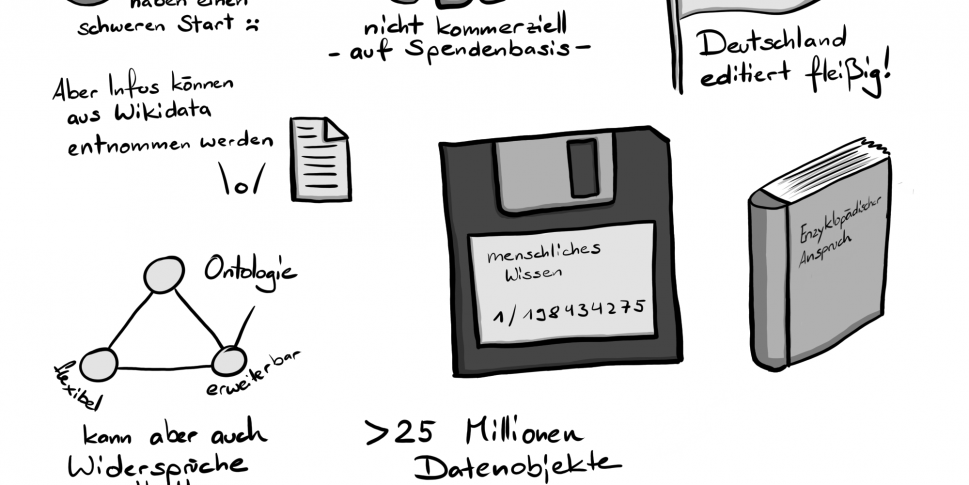 haben einen
schweren Start :(
nicht kommerziell
- auf Spendenbasis -
Deutschland
editiert fleißig!
Aber Infos können
aus Wikidata
entnommen werden
\o/
menschliches
Wissen
1/198434275
Enzyklopädischer
Anspruch
Ontologie
flexibel
erweiterbar
kann aber auch
Widersprüche
>25 Millionen
Datenobjekte